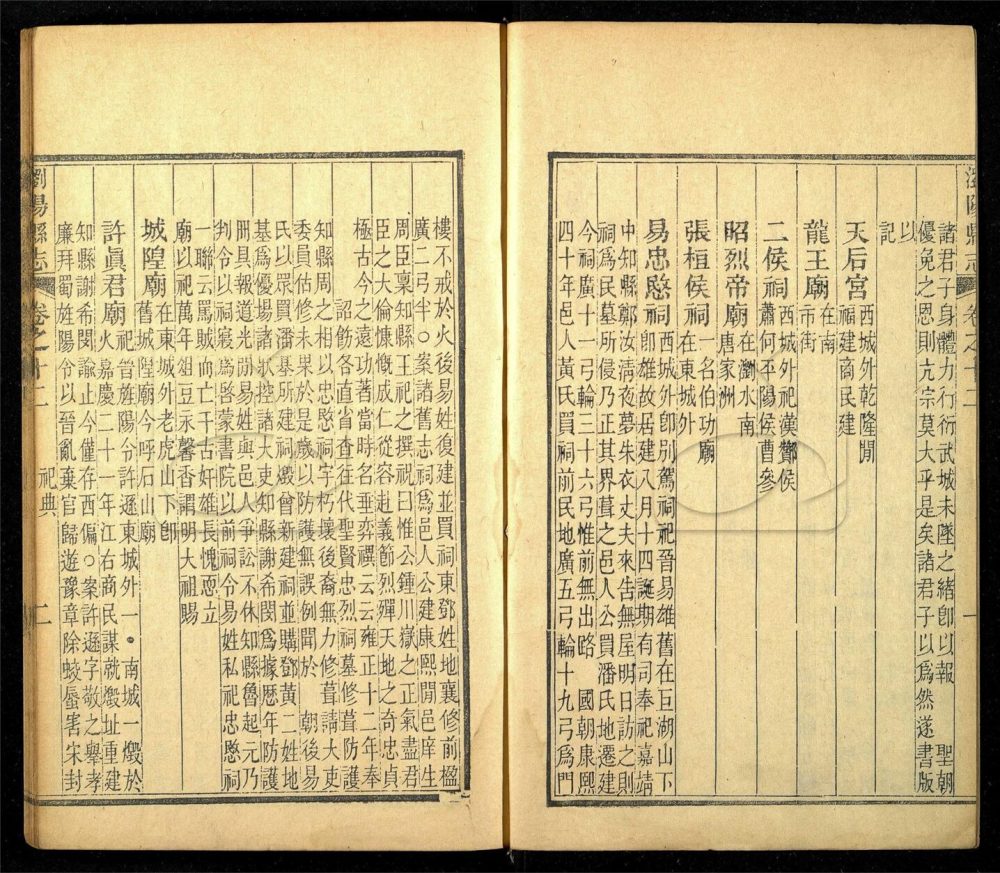 瀏陽縣志 卷之十二 一
諸君子身體力行衍武城未墜之緒卽以報 聖朝
優免之恩則亢宗莫大乎是矣諸君子以爲然遂書版
以
記
天后宮 西城外乾隆閒
福建商民建
龍王廟 在南
市街
二侯祠 西城外祀漢酇侯
蕭何平陽侯曹參
昭烈帝廟 在瀏水南
唐家洲
張桓侯祠 一名伯功廟
在東城外
易忠愍祠 西城外卽別駕祠祀晉易雄舊在巨湖山下
卽雄故居建八月十四誕期有司奉祀嘉靖
中知縣鄭汝淸夜夢朱衣丈夫來告無屋明日訪之則
祠爲民墓所侵乃正其界葺之邑人公買潘氏地遷建
今祠廣十一弓輪三十六弓惟前無出路 國朝康熙
四十年邑人黃氏買祠前民地廣五弓輪十九弓爲門
樓不戒於火後易姓復建並買祠東鄧姓地襄修前楹
廣二弓半○案諸舊志祠爲邑人公建康熙閒邑庠生
周臣稟知縣王祀之撰祝曰惟公鍾川嶽之正氣盡君
臣之大倫慷慨成仁從容赴義節烈殫天地之奇忠貞
極古今之遠功著當時名垂奕禩云云雍正十二年奉
詔飭各直省查在代聖賢忠烈祠墓修葺防護
知縣周之相以忠愍祠字朽壞後裔無力修葺請大吏
委員估修未果於是歲以防護無誤例聞於 朝後易
氏以眾買潘基所建祠燬曾新建祠並購鄧黃二姓地
基爲優場諸歌控諸大吏知縣謝希閔爲據歷年防護
冊具報道光閒易姓與邑人爭訟不休知縣魯起元乃
判令以祠寢爲啓蒙書院以前祠令易姓私祀忠愍祠
一聯云罵賊而亡千古奸雄長愧恧立
廟以祀萬年俎豆永馨香謂明大祖賜
城隍廟 在東城外老虎山下卽
舊城隍廟今呼石山廟
許眞君廟 祀晉旌陽令許遜東城外一・南城一燬於
火嘉慶二十一年江右商民謀就燬址重建
知縣謝希閔諭止今僅存西偏○案許遜字敬之舉孝
廉拜蜀旌陽令以晉亂棄官歸遊豫章除蛟蜃害宋封
瀏陽縣志 卷之十二 祀典 二